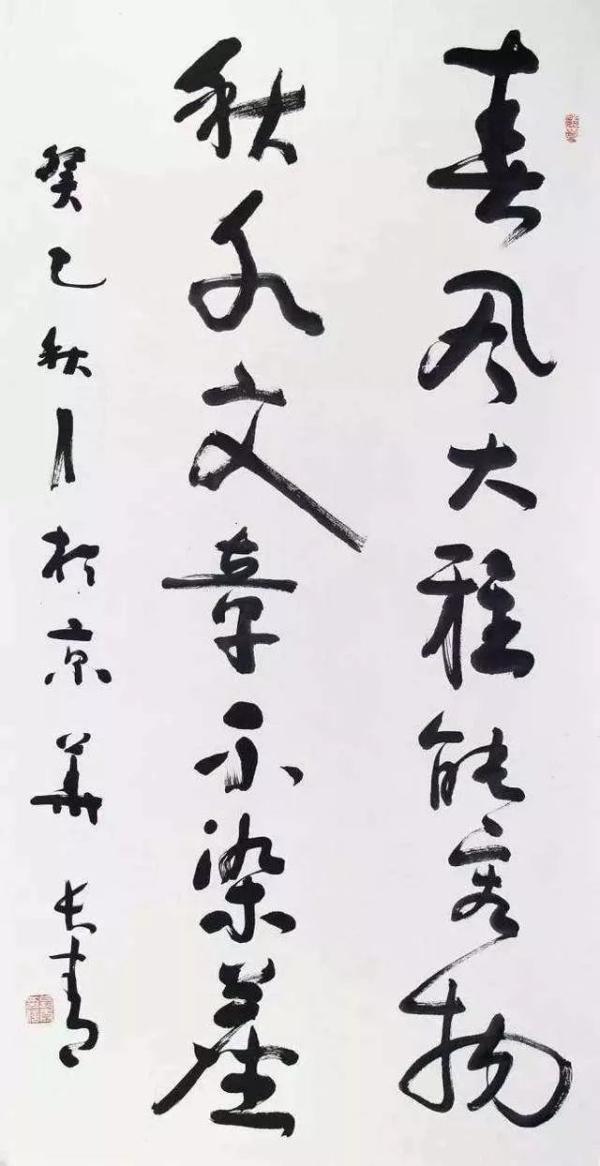 春风大雅能容物
秋水文章不染尘
癸巳秋月於京华 长青